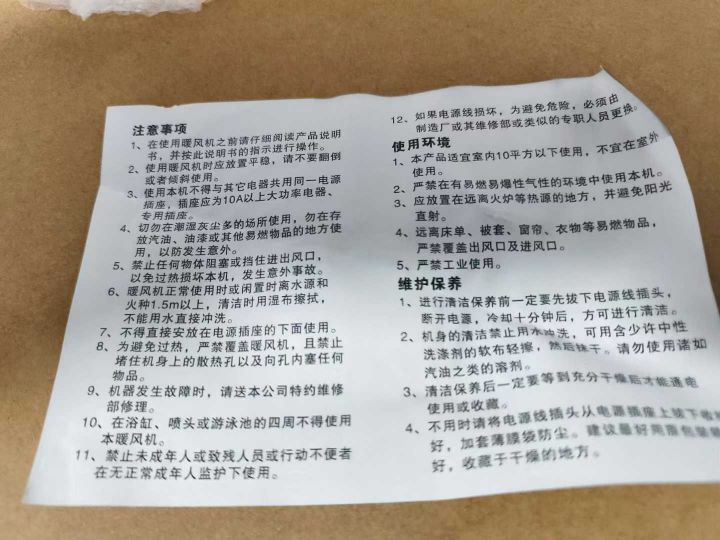 注意事项
1、在使用暖风机之前请仔细阅读产品说明
书，并按此说明书的指示进行操作。
2、使用暖风机时应放置平稳，请不要翻倒
或者倾斜使用。
3、使用本机不得与其它电器共用同一电源
插座，插座应为10A以上大功率电器、
专用插座。
4、切勿在潮湿灰尘多的场所使用，勿在存
放汽油、油漆或其他易燃物品的地方使
用，以防发生意外。
5、禁止任何物体阻塞或挡住进出风口，
以免过热损坏本机，发生意外事故。
6、暖风机正常使用时或闲置时离水源和
火种1.5m以上，清洁时用湿布擦拭，
不能用水直接冲洗。
7、不得直接安放在电源插座的下面使用。
8、为避免过热，严禁覆盖暖风机，且禁止
堵住机身上的散热孔以及向孔内塞任何
物品。
9、机器发生故障时，请送本公司特约维修
部修理。
10、在浴缸、喷头或游泳池的四周不得使用
本暖风机。
11、禁止未成年人或致残人员或行动不便者
在无正常成年人监护下使用。
12、如果电源线损坏，为避免危险，必须由
制造厂或其维修部或类似的专职人员更换。
使用环境
1、本产品适宜室内10平方以下使用，不宜在室外
使用。
2、严禁在有易燃易爆性气性的环境中使用本机。
3、应放置在远离火炉等热源的地方，并避免阳光
直射。
4、远离床单、被套、窗帘、衣物等易燃物品，
严禁覆盖出风口及进风口。
5、严禁工业使用。
维护保养
1、进行清洁保养前一定要先拔下电源线插头，
断开电源，冷却十分钟后，方可进行清洁。
2、机身的清洁禁止用水冲洗，可用含少许中性
洗涤剂的软布轻擦，然后抹干。请勿使用诸如
汽油之类的溶剂。
3、清洁保养后一定要等到充分干燥后才能通电
使用或收藏。
4、不用时请将电源线插头从电源插座上拔下收
好，加套薄膜袋防尘。建议最好用原包装
好，收藏于干燥的地方。